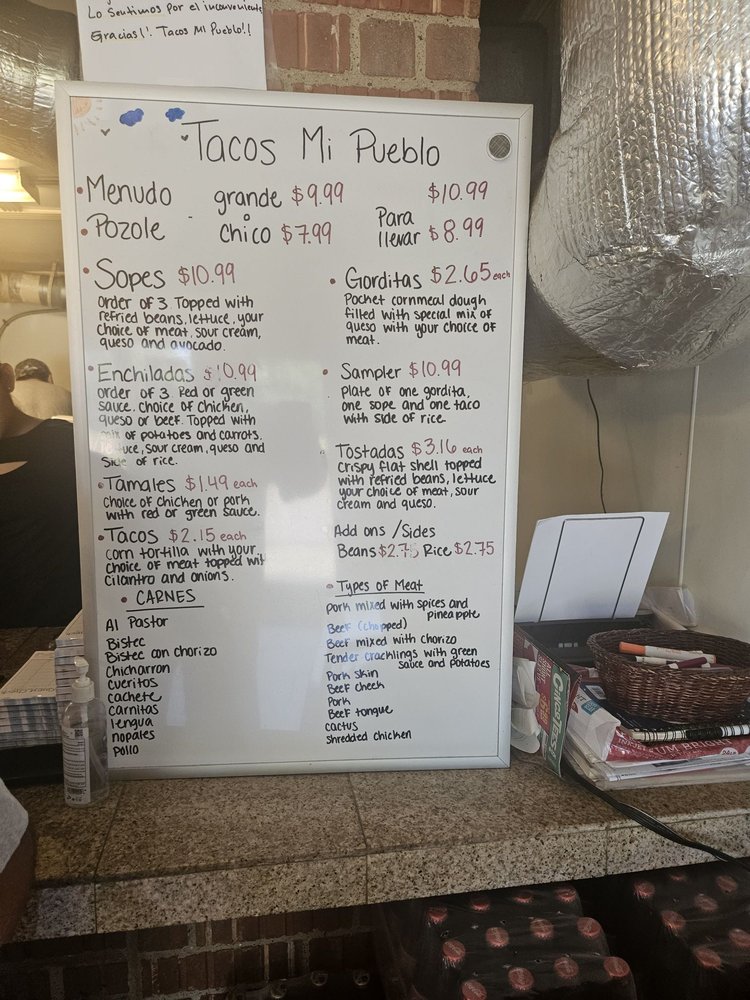 Lo Sentimos por el inconveniente
Gracias!! Tacos Mi Pueblo!!
Tacos Mi Pueblo
Menudo grande $9.99 $10.99
o
Pozole chico $7.99 Para llevar $8.99
Sopes $10.99
order of 3. Topped with
refried beans, lettuce, your
choice of meat, sour cream,
queso and avocado.
Enchiladas $10.99
order of 3. Red or green
sauce. choice of chicken,
queso or beef. Topped with
of potatoes and carrots.
lettuce, sour cream, queso and
side of rice.
Tamales $1.49 each
choice of chicken or pork
with red or green sauce.
Tacos $2.15 each
corn tortilla with your
choice of meat topped with
cilantro and onions.
CARNES
Al Pastor
Bistec
Bistec con chorizo
Chicharron
cueritos
cachete
carnitas
lengua
nopales
pollo
Gorditas $2.65 each
Pocket cornmeal dough
filled with special mix of
queso with your choice of
meat.
Sampler $10.99
Plate of one gordita,
one sope and one taco
with side of rice.
Tostadas $3.16 each
crispy flat shell topped
with refried beans, lettuce
your choice of meat, sour
cream and queso.
Add ons / Sides
Beans $2.75 Rice $2.75
Types of Meat
pork mixed with spices and
pineapple
Beef (chopped)
Beef mixed with chorizo
Tender cracklings with green
sauce and potatoes
Pork skin
Beef cheek
Pork
Beef tongue
cactus
shredded chicken